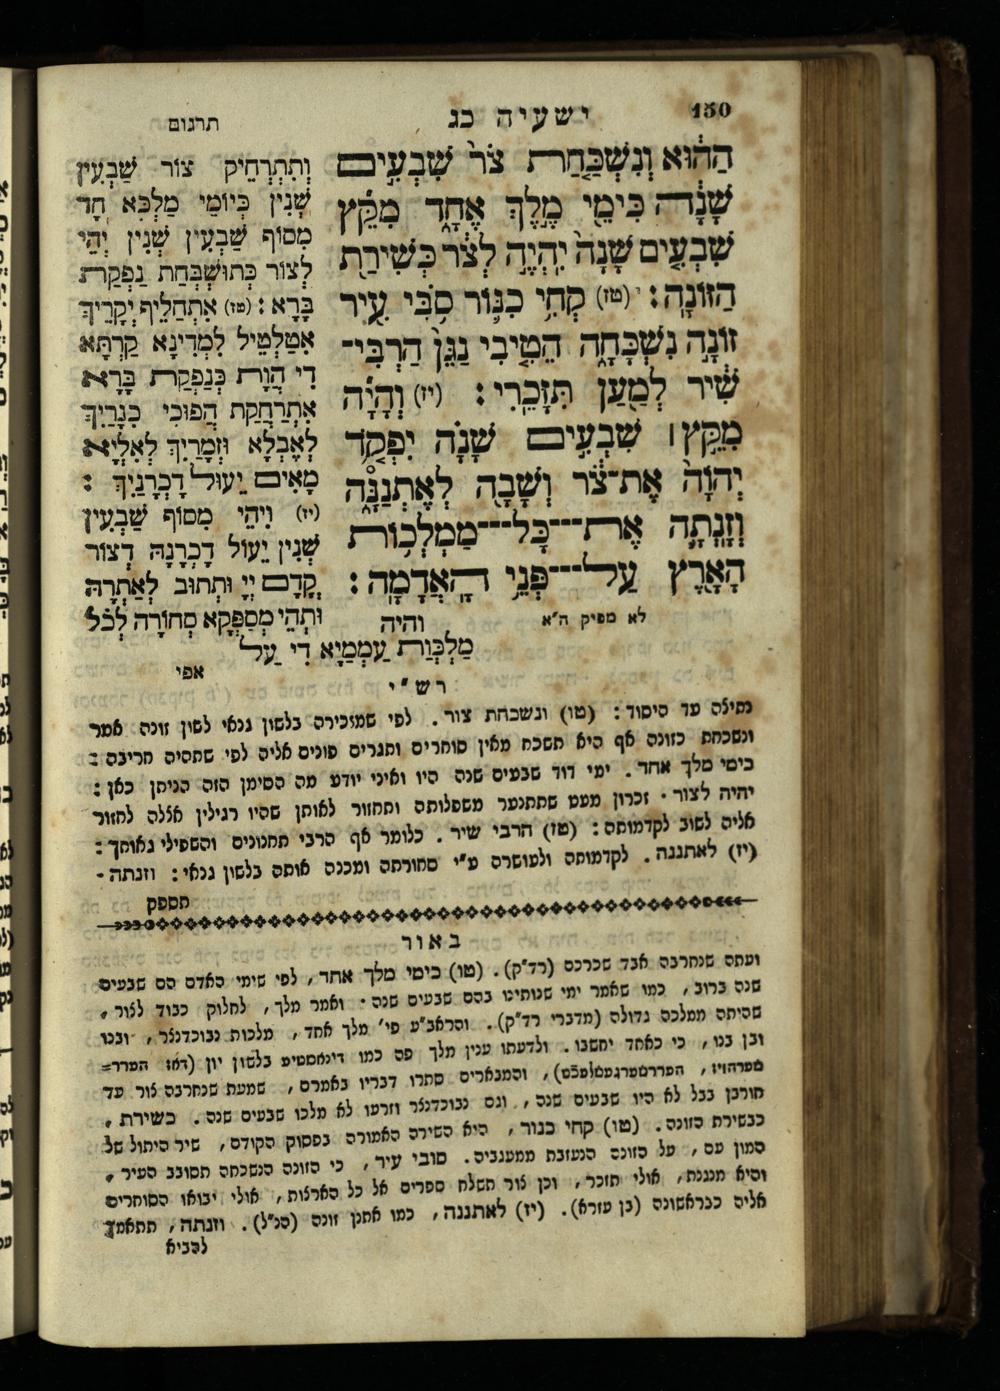 150
ישעיה כג
תרגום
הַה֔וּא וְנִשְׁכַּ֤חַת צֹר֙ שִׁבְעִ֣ים
שָׁנָ֔ה כִּימֵ֖י מֶ֣לֶךְ אֶחָ֑ד מִקֵּ֞ץ
שִׁבְעִ֤ים שָׁנָה֙ יִֽהְיֶ֣ה לְצֹ֔ר כְּשִׁירַ֖ת
הַזּוֹנָֽה׃ (טז) קְחִ֥י כִנּ֛וֹר סֹ֥בִּי עִ֖יר
זוֹנָ֣ה נִשְׁכָּחָ֑ה הֵטִ֤יבִי נַגֵּן֙ הַרְבִּי־
שִׁ֔יר לְמַ֖עַן תִּזָּכֵֽרִי׃ (יז) וְהָיָ֞ה
מִקֵּ֣ץ ׀ שִׁבְעִ֣ים שָׁנָ֗ה יִפְקֹ֤ד
יְהוָה֙ אֶת־צֹ֔ר וְשָׁבָ֖ה לְאֶתְנַנָּ֑ה
וְזָֽנְתָ֛ה אֶת־כָּל־מַמְלְכ֥וֹת
הָאָ֖רֶץ עַל־פְּנֵ֥י הָֽאֲדָמָֽה׃
לא מפיק ה"א
והיה
וְתִתְרְחֵיק צוֹר שַׁבְעִין
שְׁנִין כְּיוֹמֵי מַלְכָּא חַד
מִסּוֹף שַׁבְעִין שְׁנִין יְהֵי
לְצוֹר כְּתוּשְׁבַּחַת נַפְקַת
בָּרָא׃ (טז) אִתְהַלִּיף יְקָרִיךְ
אִטַּלְטֵיל לִמְדִינָא קַרְתָּא
דִי הֲוַת כְּנַפְקַת בָּרָא
אִתְרַחֲקַת הֲפוּכִי כִנָּרִיךְ
לְאֶבְלָא וּזְמָרִיךְ לְאִלְיָא
מָאִים יֵעוּל דָכְרָנִיךְ׃
(יז) וִיהֵי מִסּוֹף שַׁבְעִין
שְׁנִין יֵעוֹל דָּכְרָנָהּ דְצוֹר
קֳדָם יְיָ וּתְתוּב לְאַתְרָהּ
וּתְהֵי מְסַפְּקָא סְחוֹרָה לְכֹל
מַלְכְּוַת עַמְמַיָּא דִי עַל
אפי
רש"י
נפילה עד היסוד : (טו) ונשכחת צור . לפי שמזכירה בלשון גנאי לשון זונה אמר
ונשכחת כזונה אף היא תשכח מאין סוחרים ותגרים פונים אליה לפי שתהיה חריבה :
כימי מלך אחד . ימי דוד שבעים שנה היו ואיני יודע מה הסימן הזה הניתן כאן :
יהיה לצור . זכרון מעט שתתנער משפלותה ותחזור לאותן שהיו רגילין אצלה לחזור
אליה לשוב לקדמותה : (טז) הרבי שיר . כלומר אף הרבי תחנונים והשפילי גאותך :
(יז) לאתננה . לקדמותה ולעושרה ע"י סחורתה ומכנה אותה בלשון גנאי : וזנתה .
תספק
באור
ועתה שנחרבה אבד שכרכם (רד"ק). (טו) כימי מלך אחד, לפי שימי האדם הם שבעים
שנה ברוב, כמו שאמר ימי שנותינו בהם שבעים שנה . ואמר מלך, לחלוק כבוד לצור,
שהיתה ממלכה גדולה (מדברי רד"ק). והראב"ע פי' מלך אחד, מלכות נבוכדנצר, ובנו
ובן בנו, כי כאחד יחשבו. ולדעתו ענין מלך פה כמו דינאסטיע בלשון יון (דאז הערר=
), והמבארים סתרו דבריו באמרם, שמעת שנחרבה צור עד
חורבן בבל לא היו שבעים שנה, וגם נבוכדנצר וזרעו לא מלכו שבעים שנה. כשירת,
כבשירת הזונה. (טו) קחי כנור, היא השירה האמורה בפסוק הקודם, שיר היתול של
המון עם, על הזונה הנעזבת ממענביה. סובי עיר, כי הזונה הנשכחה תסובב העיר,
והיא מנגנת, אולי תזכר, וכן צור תשלח ספרים אל כל הארצות, אולי יבואו הסוחרים
אליה כבראשונה (בן עזרא). (יז) לאתננה, כמו אתנן זונה (הנ"ל). וזנתה, תתאמץ
להביא